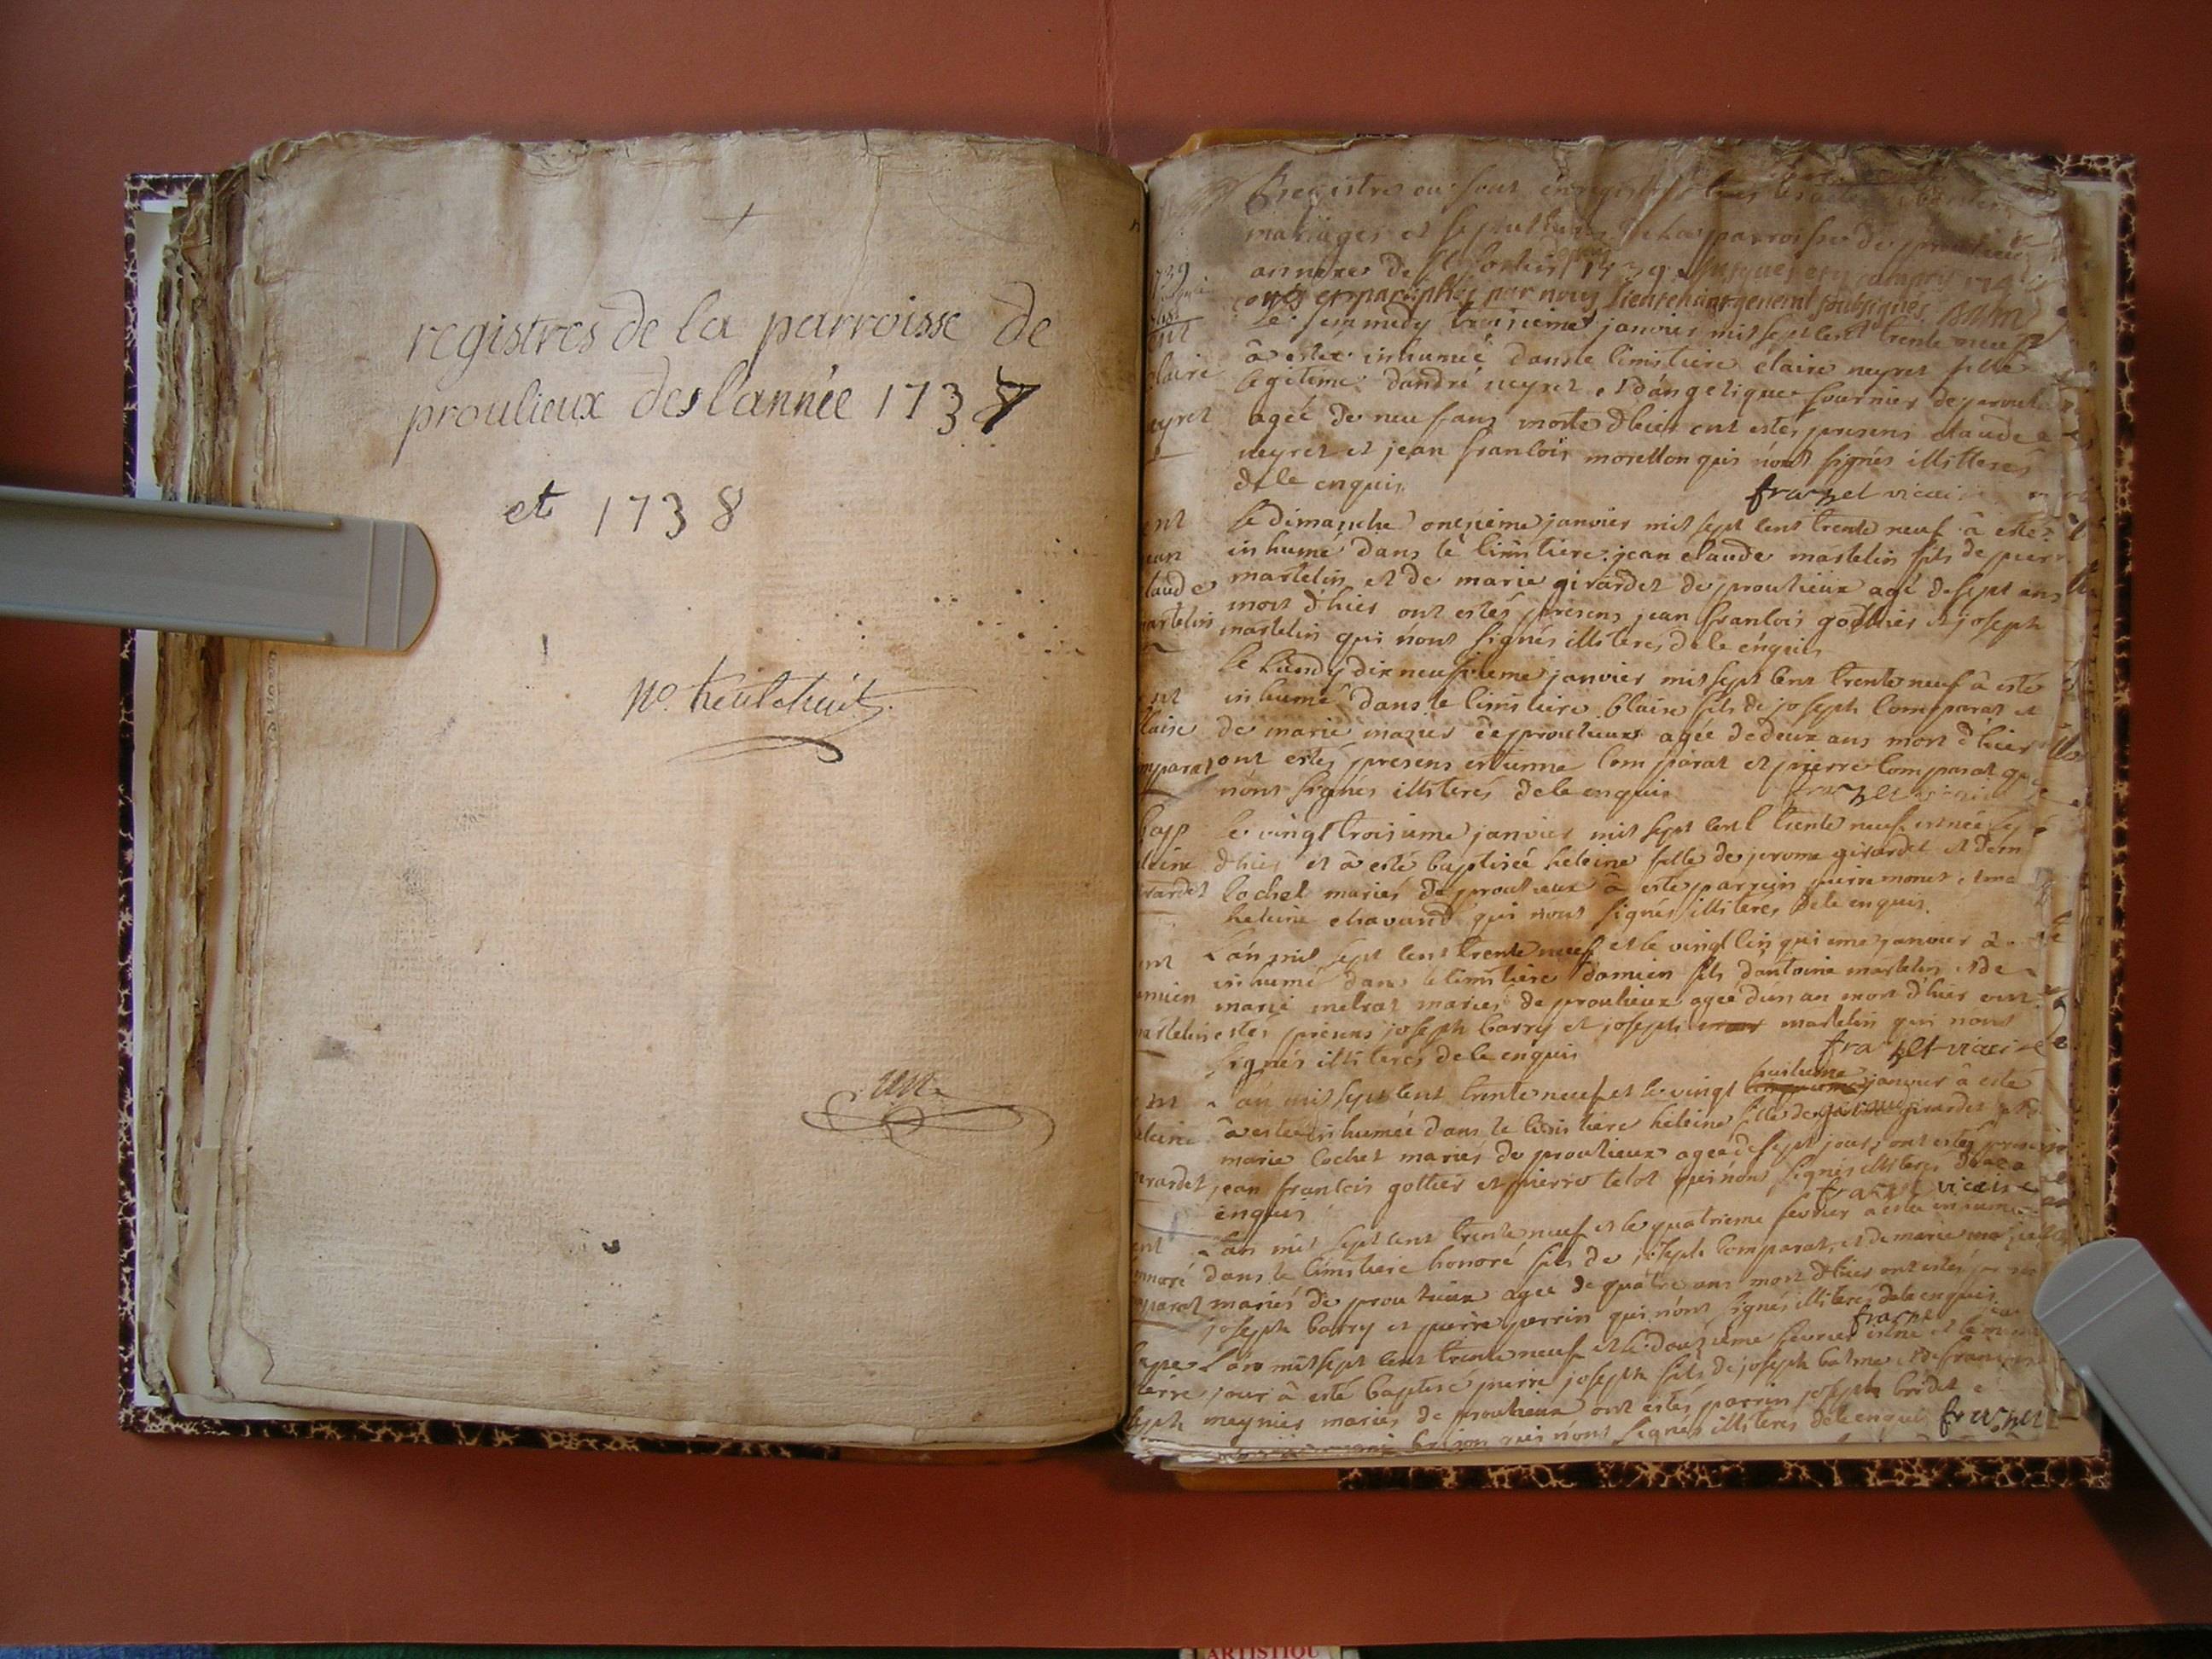 registres de la parroisse de
proulieux des lannée 1737
et 1738
No. trentehuit
registre ou sont enregistr tous les actes
mariages et sepultures de la parroisse de proulieux
annexe de St Sorlin 1739
cottés et paraphés par nous lieutenant general soubsignes
1739
Le sammedy troisieme janvier mil sept cent trente neuf
ent
à estée inhumeé dans le cimistiere claire neyret fille
claire
legitime dandré neyret et dangelique fournier de prouli
neyret
ageé de neuf ans morte dhier ont estés presens claude
neyret et jean francois morellon qui nont signés illitteres
de le enquis
franet vicai
ent
Le dimanche onzieme janvier mil sept cent trente neuf à esté
jean
inhumé dans le cimistiere jean claude martelin fils de pierr
claude
martelin et de marie girardet de proulieux agé de sept ans
martelin
mort dhier ont estés presens jean francois gottier et joseph
martelin qui nont signés illiteres de le enquis
Le lundy dixneufvieme janvier mil sept cent trente neuf à esté
ent
inhumé dans le cimistiere blaise fils de joseph comparat et
blaise
de marie mazuer de proulieux agée de deux ans mort dhier
mparat
ont estés presens estienne comparat et pierre comparat qui
nont signés illiterés de le enquis
bap
Le vingt troisieme janvier mil sept cent trente neuf est née
heleine
dhier et à esté baptiseé heleine fille de jerome girardet et de m
girardet
cochet mariés de proulieux à esté parrein pierre monet et ma
heleine chavand qui nont signés illiterés de le enquis
ent
L'an mil sept cent trente neuf et le vingt cinquieme janvier à
inhumé dans le cimistiere damien fils dantoine martelin et de
amien
marie metrat mariés de proulieux ageé d'un an mort dhier ont
martelin
estés presens joseph barry et joseph martelin qui nont
signés illiteres de le enquis
franet vicaire
huitieme
ent
L'an mil sept cent trente neuf et le vingt cinquieme janvier à esté
à estée inhumeé dans le cimistiere heleine fille de jerome girardet et d
heleine
marie cochet mariés de proulieux ageé de sept jours ont estés presens
girardet
jean francois gottier et pierre telot qui nont signés illiteres de le
enquis
franet vicaire
ent
L'an mil sept cent trente neuf et le quatrieme fevrier à estée inhumé
honnoré
dans le cimistiere honoré fils de joseph comparat, et de marie
mparat
mariés de proulieux agée de quatre ans mort dhier ont estés
joseph barry et pierre perrin qui nont signés illiteres de le enquis
bape
L'an mil sept cent trente neuf et le douzieme fevrier est né et le m
pierre
jour à esté baptisé pierre joseph fils de joseph balme et de fran
joseph
meynier mariés de proulieux ont estés parrin joseph bridet e
brison qui nont signés illiteres de le enquis franet
ARTISTIQU